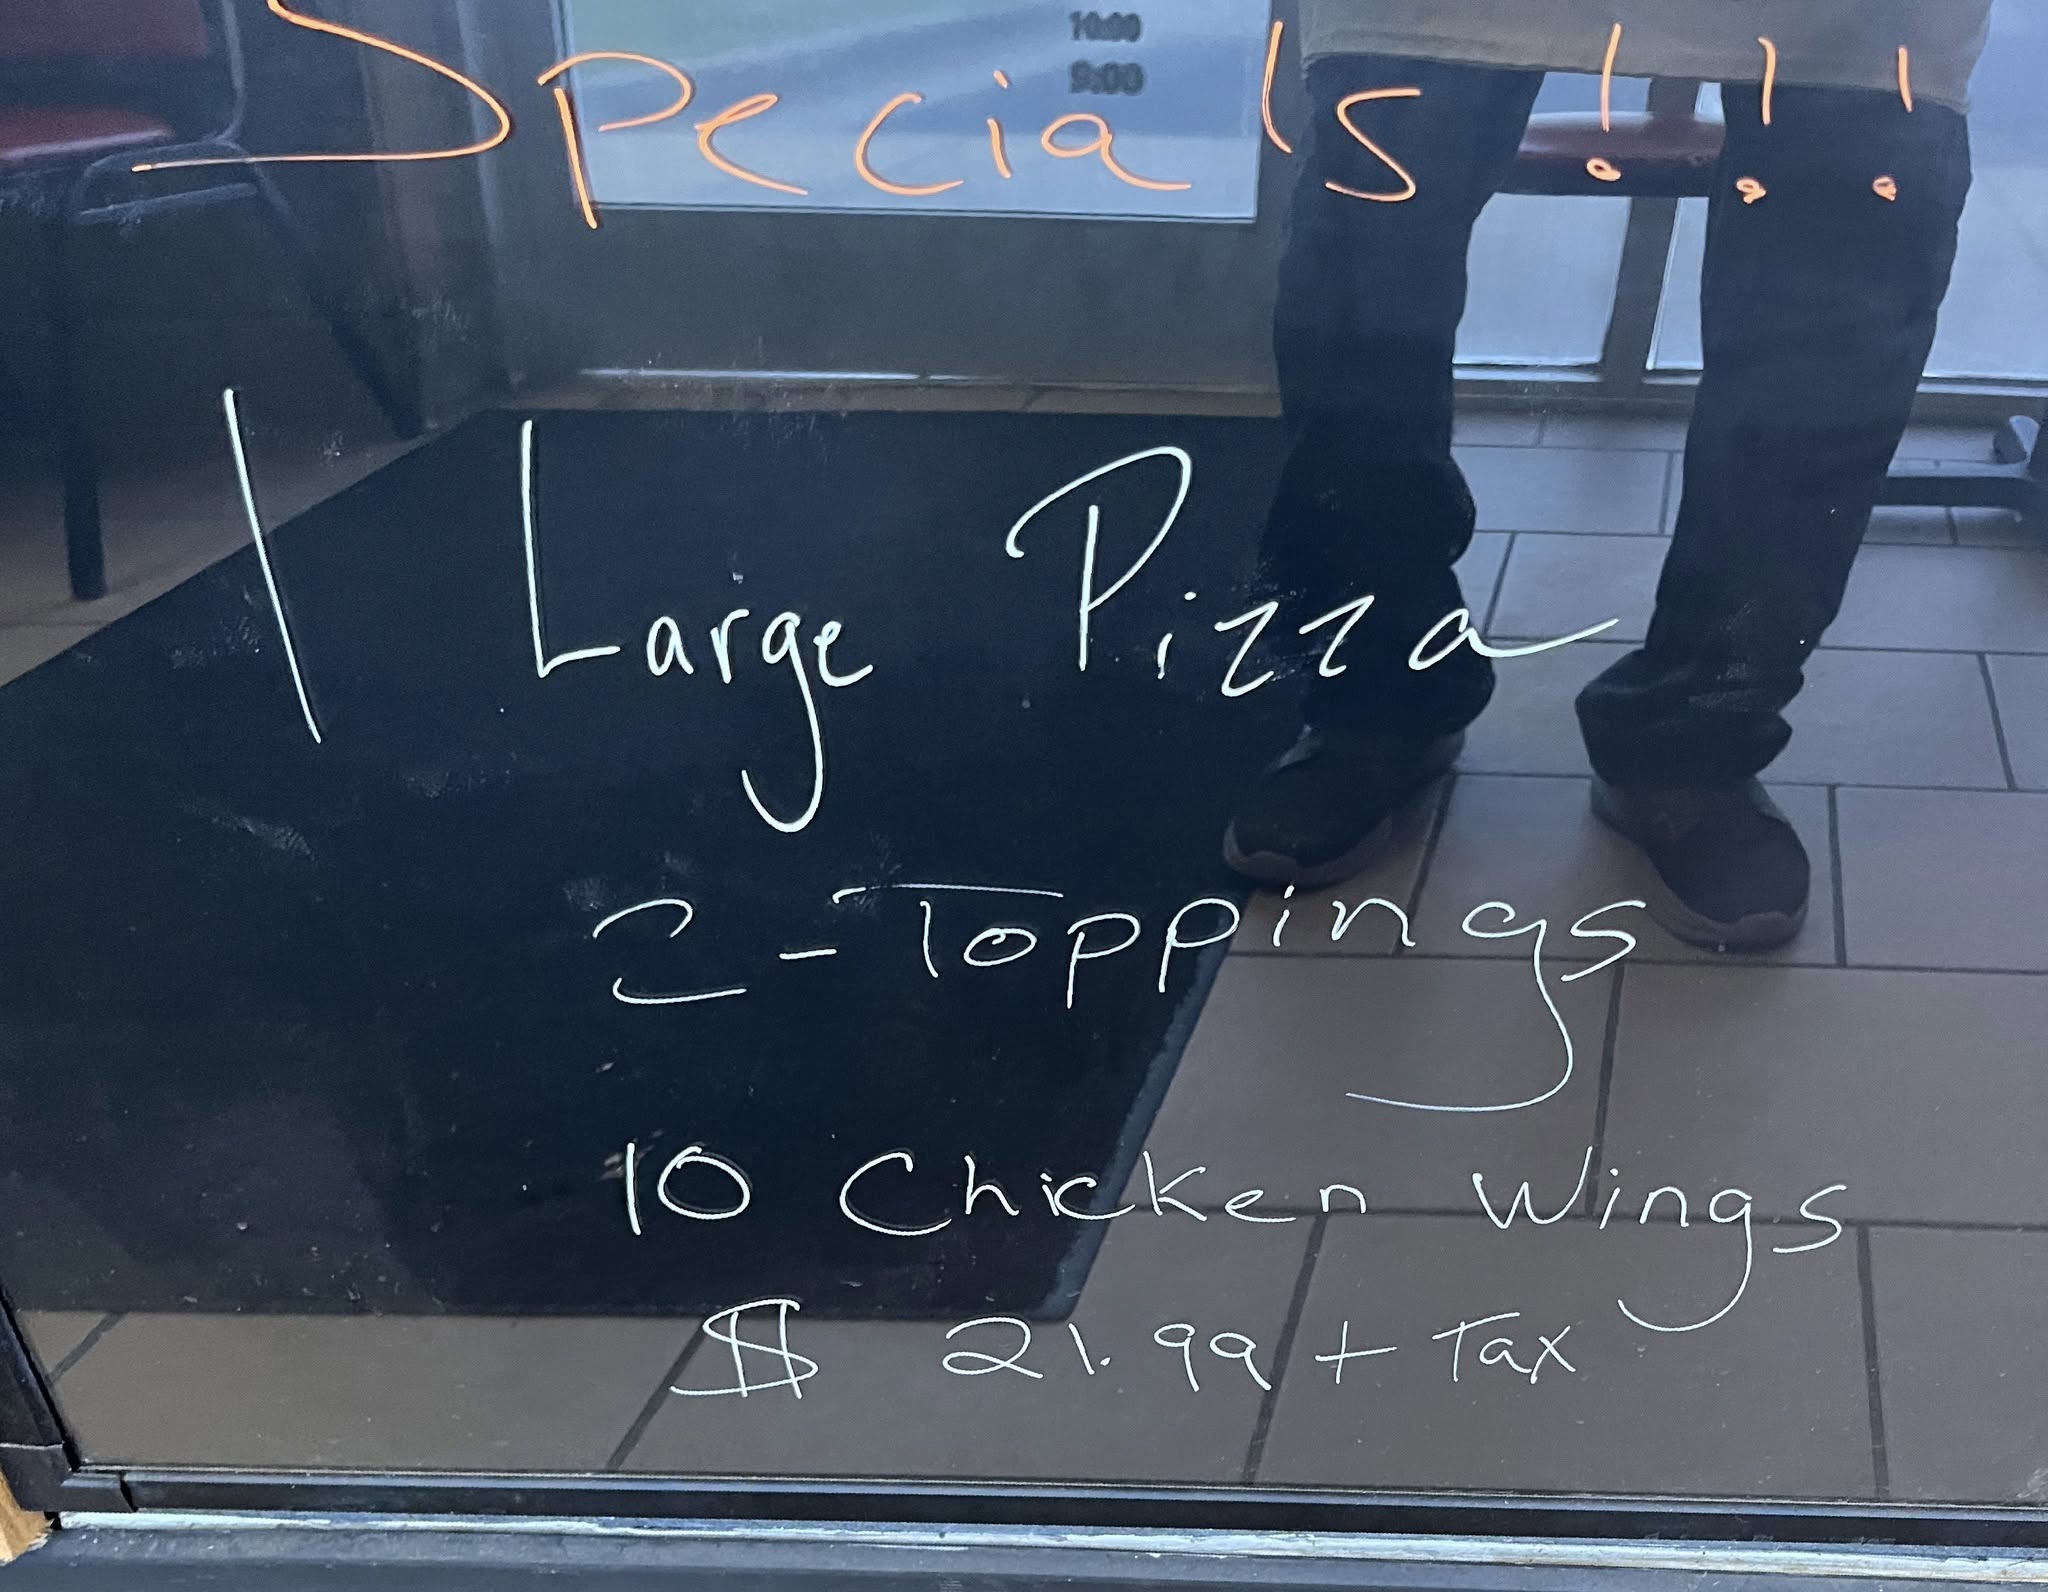 10:00
9:00
Specials !!!
1 Large Pizza
2 - Toppings
10 Chicken Wings
$ 21.99 + Tax